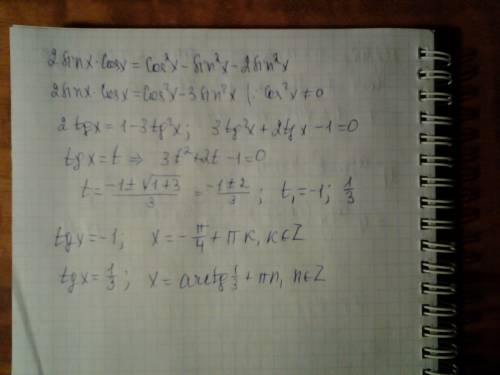 2sinx·cosx = cos²x - sin²x - 2sin²x
2sinx·cosx = cos²x - 3sin²x |: cos²x ≠ 0
2tgx = 1 - 3tg²x; 3tg²x + 2tgx - 1 = 0
tgx = t ⇒ 3t² + 2t - 1 = 0
t = (-1 ± √(1+3))/3 = (-1 ± 2)/3; t₁ = -1; 1/3
tgx = -1; x = -π/4 + πк, к∈Z
tgx = 1/3; x = arctg 1/3 + πn, n∈Z